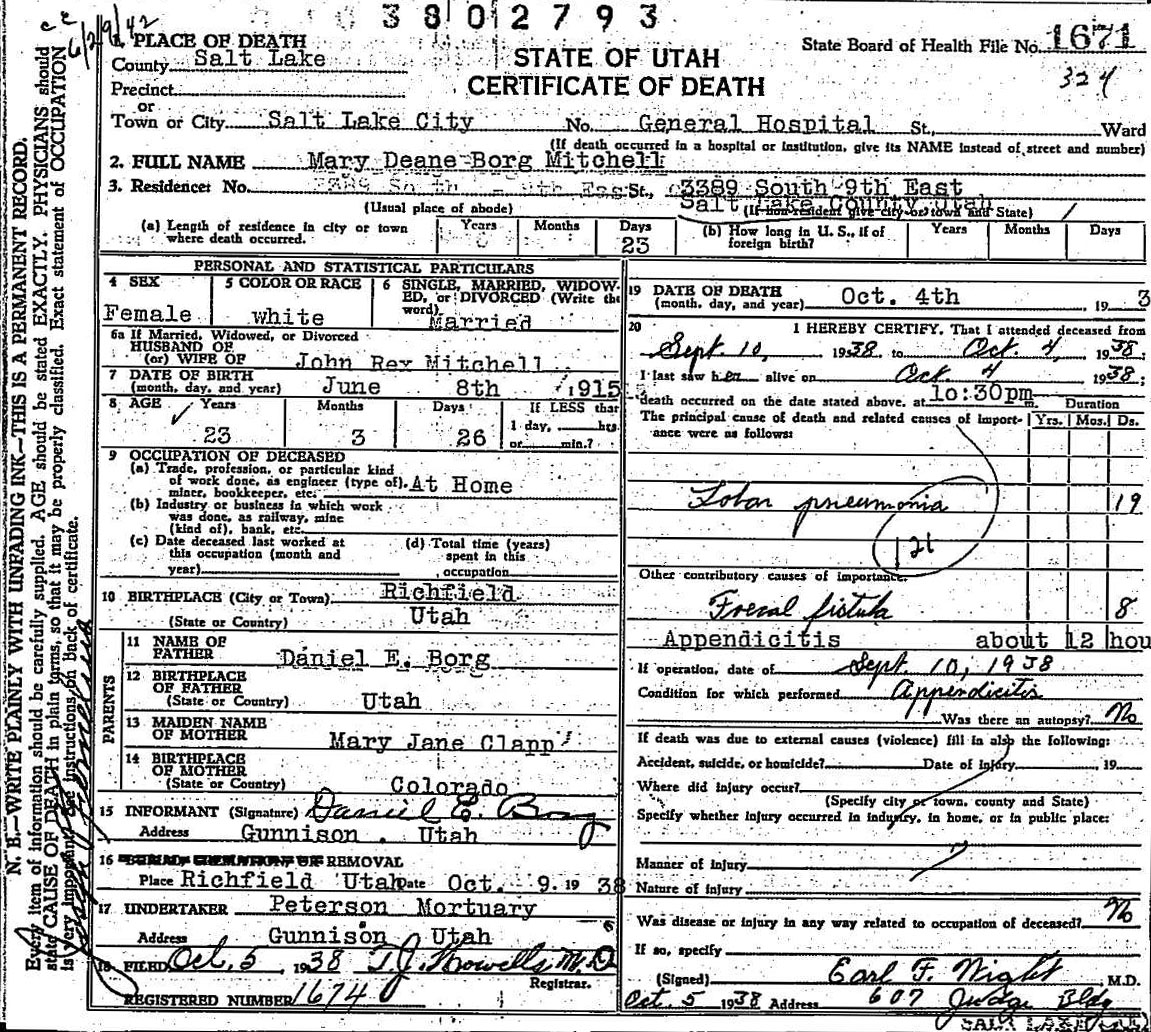 3802793
6/29/42
1. PLACE OF DEATH
County Salt Lake
Precinct
or
Town or City Salt Lake City No. General Hospital St., Ward
(If death occurred in a hospital or institution, give its NAME instead of street and number)
STATE OF UTAH
CERTIFICATE OF DEATH
State Board of Health File No. 1671
324
2. FULL NAME Mary Deane Borg Mitchell
3. Residence: No. St., 3389 South 9th East
Salt Lake County Utah
(Usual place of abode) (If non-resident give city or town and State)
(a) Length of residence in city or town where death occurred. Years Months Days 23
(b) How long in U. S., if of foreign birth? Years Months Days
PERSONAL AND STATISTICAL PARTICULARS
4 SEX Female
5 COLOR OR RACE white
6 SINGLE, MARRIED, WIDOWED, or DIVORCED (Write the word) Married
6a If Married, Widowed, or Divorced
HUSBAND OF
(or) WIFE OF John Rex Mitchell
7 DATE OF BIRTH
(month, day, and year) June 8th 1915
8 AGE Years Months Days If LESS than
23 3 26 1 day, hrs.
or min.?
9 OCCUPATION OF DECEASED
(a) Trade, profession, or particular kind
of work done, as engineer (type of), At Home
miner, bookkeeper, etc.
(b) Industry or business in which work
was done, as railway, mine
(kind of), bank, etc.
(c) Date deceased last worked at
this occupation (month and
year)
(d) Total time (years)
spent in this
occupation
10 BIRTHPLACE (City or Town) Richfield
(State or Country) Utah
PARENTS
11 NAME OF
FATHER Daniel E. Borg
12 BIRTHPLACE
OF FATHER
(State or Country) Utah
13 MAIDEN NAME
OF MOTHER Mary Jane Clapp
14 BIRTHPLACE
OF MOTHER
(State or Country) Colorado
15 INFORMANT (Signature) Daniel E. Borg
Address Gunnison, Utah
16 REMOVAL
Place Richfield Utah Date Oct. 9. 19 38
17 UNDERTAKER Peterson Mortuary
Address Gunnison Utah
18 FILED Oct. 5 1938 T. J. Howells M.D.
Registrar.
REGISTERED NUMBER 1674
19 DATE OF DEATH
(month, day, and year) Oct. 4th 19 3
20 I HEREBY CERTIFY, That I attended deceased from
Sept. 10, 1938 to Oct. 4, 1938;
I last saw her alive on Oct. 4 1938;
death occurred on the date stated above, at 10:30pm m. Duration
The principal cause of death and related causes of import- Yrs. Mos. Ds.
ance were as follows:
Lobar pneumonia 19
121
Other contributory causes of importance:
Foecal fistula 8
Appendicitis about 12 hou
If operation, date of Sept. 10, 1938
Condition for which performed Appendicitis
Was there an autopsy? No
If death was due to external causes (violence) fill in also the following:
Accident, suicide, or homicide? Date of injury 19
Where did injury occur?
(Specify city or town, county and State)
Specify whether injury occurred in industry, in home, or in public place:
Manner of Injury
Nature of Injury
Was disease or injury in any way related to occupation of deceased? No
If so, specify
(Signed) Earl F. Wight M.D.
Oct. 5 1938 Address 607 Judge Bldg
N. B.—WRITE PLAINLY WITH UNFADING INK—THIS IS A PERMANENT RECORD.
Every item of information should be carefully supplied. AGE should be stated EXACTLY. PHYSICIANS should
state CAUSE OF DEATH in plain terms, so that it may be properly classified. Exact statement of OCCUPATION
is very important. See instructions on Back of certificate.